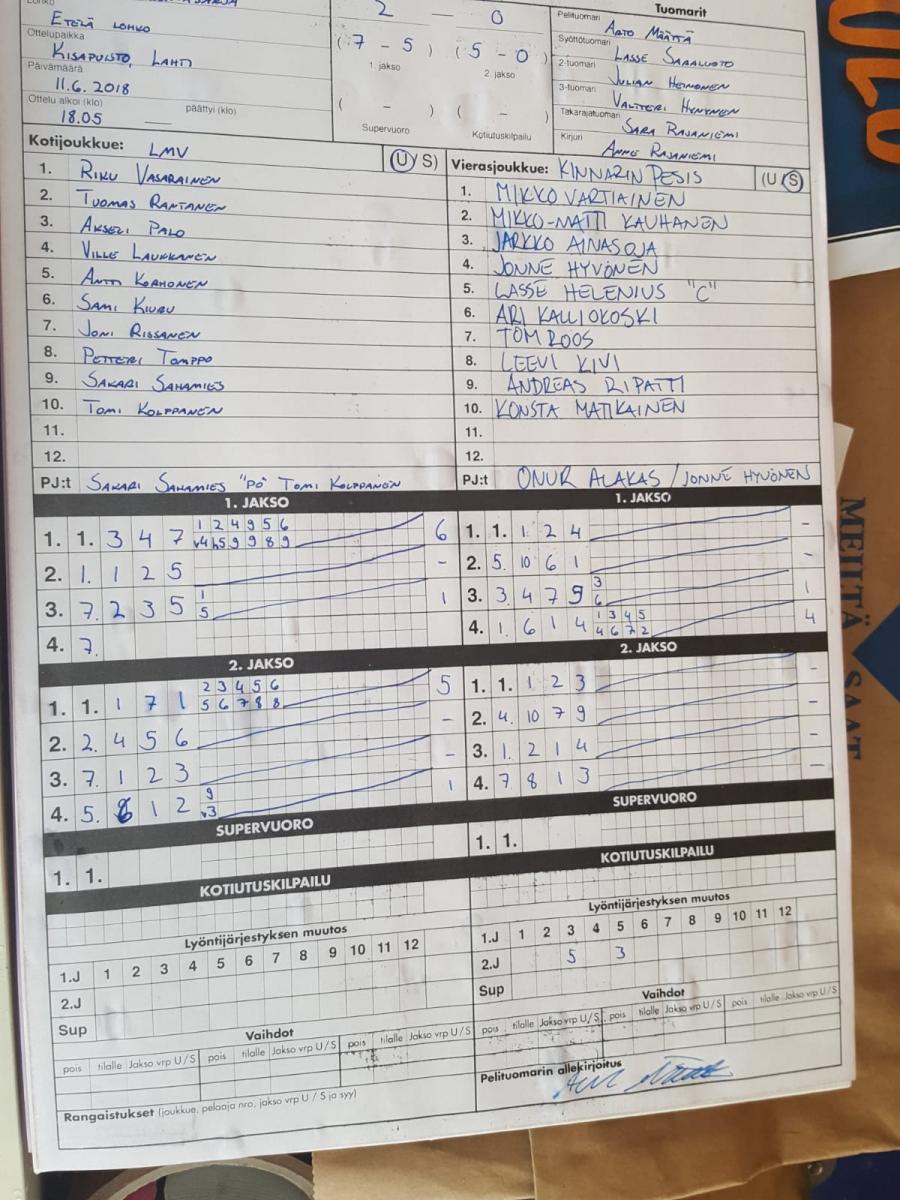 Lohko
ETELÄ LOHKO
Ottelupaikka
KISAPUISTO, LAHTI
Päivämäärä
11.6. 2018
Ottelu alkoi (klo) päättyi (klo)
18.05 —
2 – 0
( 7 – 5 ) ( 5 – 0 )
1. jakso 2. jakso
( – ) ( – )
Supervuoro Kotiutuskilpailu
Tuomarit
Pelituomari
Syöttötuomari
2-tuomari
3-tuomari
Takarajatuomari
Kirjuri
ARTO MÄÄTTÄ
LASSE SAARLUOTO
JULIAN HEINONEN
VALTTERI HYNYNEN
SARA RAJANIEMI
ANNE RAJANIEMI
Kotijoukkue: LMV (U/S)
1. RIKU VASARAINEN
2. TUOMAS RANTANEN
3. AKSELI PALO
4. VILLE LAUKKANEN
5. ANTTI KORHONEN
6. SAMI KIURU
7. JONI RISSANEN
8. PETTERI TOMPPO
9. SAKARI SAHAMIES
10. TOMI KOLPPANEN
11.
12.
PJ:t SAKARI SAHAMIES "PÖ" TOMI KOLPPANEN
Vierasjoukkue: KINNARIN PESIS (U/S)
1. MIKKO VARTIAINEN
2. MIKKO-MATTI KAUHANEN
3. JARKKO AINASOJA
4. JONNE HYVÖNEN
5. LASSE HELENIUS "C"
6. ARI KALLIOKOSKI
7. TOM ROOS
8. LEEVI KIVI
9. ANDREAS RIPATTI
10. KONSTA MATIKAINEN
11.
12.
PJ:t ONUR ALAKAS / JONNE HYVÖNEN
1. JAKSO
1 2 4 9 5 6
1. 1. 3 4 7 v4 h5 9 9 8 9 6
2. 1. 1 2 5 –
1
3. 7. 2 3 5 5 1
4. 7.
2. JAKSO
2 3 4 5 6
1. 1. 1 7 1 5 6 7 8 8 5
2. 2. 4 5 6 –
3. 7. 1 2 3 –
9
4. 5. 6 1 2 v3 1
SUPERVUORO
1. 1.
KOTIUTUSKILPAILU
Lyöntijärjestyksen muutos
1.J 1 2 3 4 5 6 7 8 9 10 11 12
2.J
Sup
Vaihdot
pois tilalle Jakso vrp U / S pois tilalle Jakso vrp U / S pois tilalle Jakso vrp U / S
Rangaistukset (joukkue, pelaaja nro, jakso vrp U / S ja syy)
1. JAKSO
1. 1. 1 2 4 –
2. 5. 10 6 1 –
3
3. 3. 4 7 9 6 1
1 3 4 5
4. 1. 6 1 4 4 6 7 2 4
2. JAKSO
1. 1. 1 2 3 –
2. 4. 10 7 9 –
3. 1. 2 1 4 –
4. 7. 8 1 3 –
SUPERVUORO
1. 1.
KOTIUTUSKILPAILU
Lyöntijärjestyksen muutos
1.J 1 2 3 4 5 6 7 8 9 10 11 12
2.J 5 3
Sup
Vaihdot
pois tilalle Jakso vrp U / S pois tilalle Jakso vrp U / S pois tilalle Jakso vrp U / S
Pelituomarin allekirjoitus
MEILTÄ SAAT